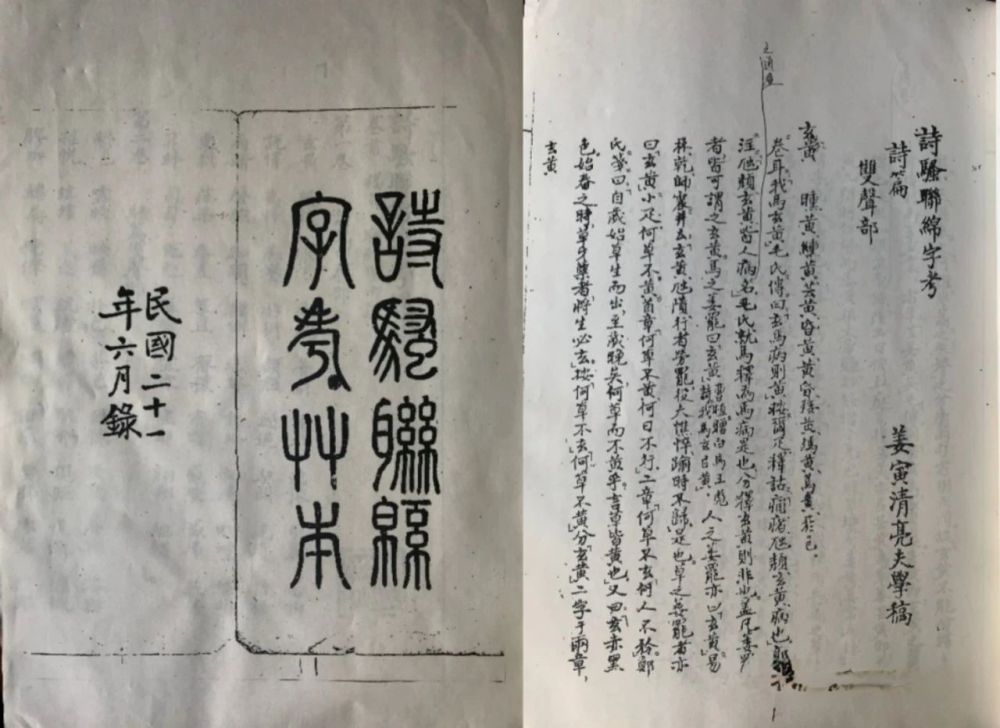 詩騷聯緜
字考艸本
民國二十一
年六月錄
詩騷聯綿字考
詩篇
雙聲部
姜寅清亮夫學稿
玄黃
卷耳我馬玄黃毛氏傳曰玄馬病則黃按謂是釋詁痡瘏虺頹玄黃病也郭
注虺頹玄黃皆人病名毛氏就馬釋為馬病是也分釋玄黃則非也蓋凡萎罷
者皆可謂之玄黃馬之萎罷曰玄黃 人之萎罷亦曰玄黃易
林乾師 玄黃虺隤行者勞罷役夫憔悴踰時不歸是也草之萎罷者亦
曰玄黃小疋何草不黃首章何草不黃何日不行二章何草不玄何人不矜鄭
氏箋曰自歲始草生而出至歲晚矣何草而不黃乎言草皆黃也又曰玄赤黑
色始春之時草牙蘗者將生必玄按何草不玄何草不黃分玄黃二字于兩章
玄黃